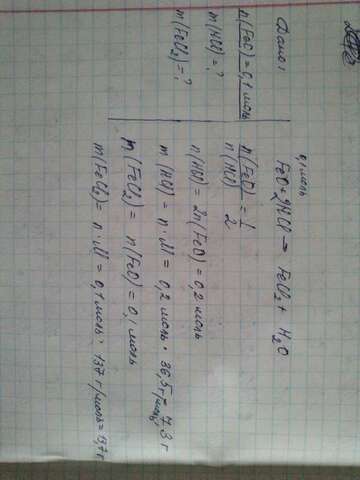 Дано:
n(FeO) = 0,1 моль
m(HCl) = ?
m(FeCl2) = ?
0,1 моль
FeO + 2HCl → FeCl2 + H2O
n(FeO) / n(HCl) = 1/2
n(HCl) = 2n(FeO) = 0,2 моль
m(HCl) = n · M = 0,2 моль · 36,5 г/моль = 7,3 г
m(FeCl2) = n(FeO) = 0,1 моль
m(FeCl2) = n · M = 0,1 моль · 137 г/моль = 13,7 г